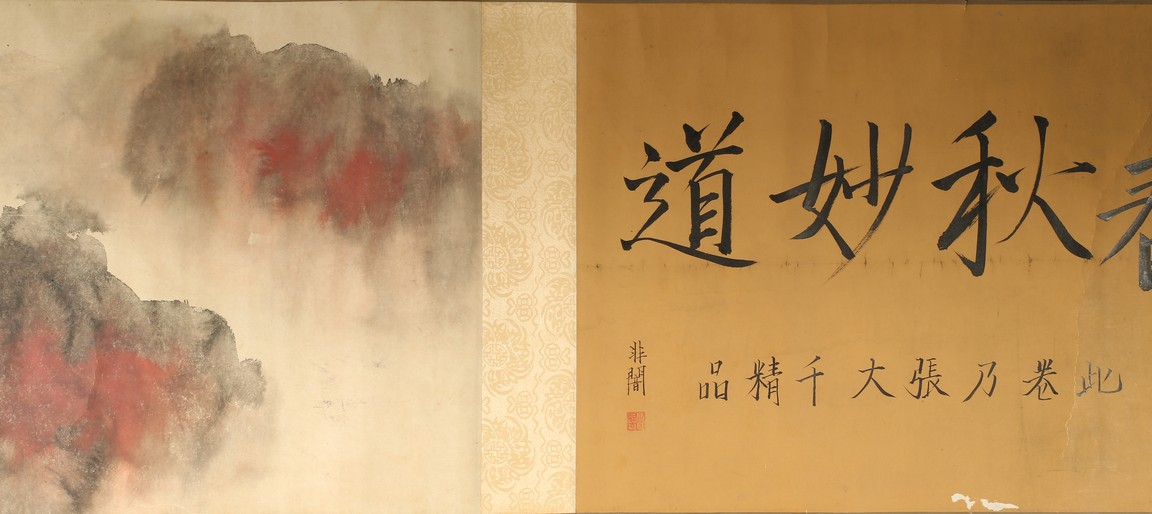 秋妙道
此卷乃張大千精品
非闇